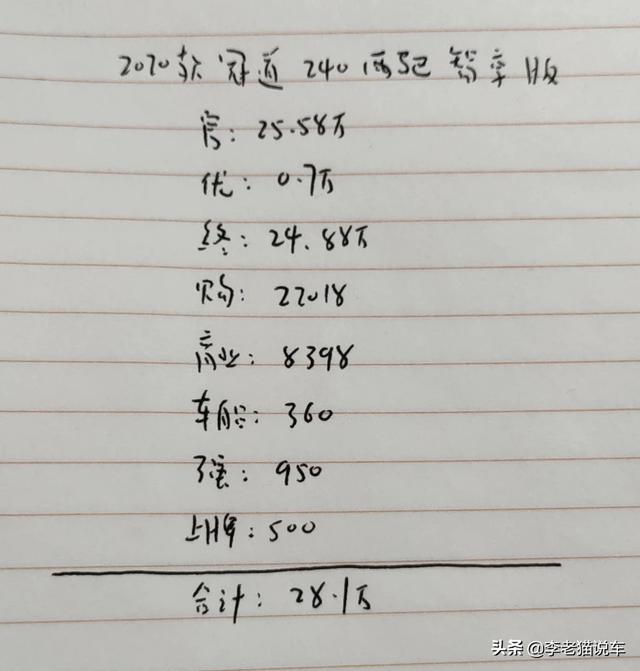 2020款 冠道 240 两驱 智享版
官: 25.58万
优: 0.7万
终: 24.88万
购: 22018
商业: 8398
车船: 360
强: 950
上牌: 500
合计: 28.1万
头条 @李老猫说车